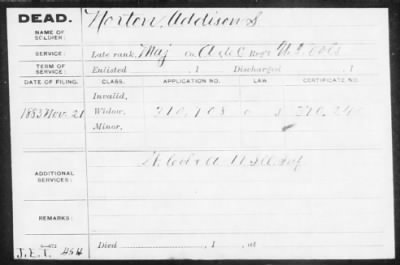 DEAD.
NAME OF SOLDIER:
Norton, Addison S.
SERVICE:
Late rank, Maj Co. A.d.C. Reg't U.S. Vols
TERM OF SERVICE:
Enlisted , 1 Discharged , 1
DATE OF FILING. CLASS. APPLICATION NO. LAW CERTIFICATE NO.
Invalid,
1883 Nov. 21 Widow, 310,708
Minor,
ADDITIONAL SERVICES:
REMARKS:
Died , 1 , at
J.E.T.